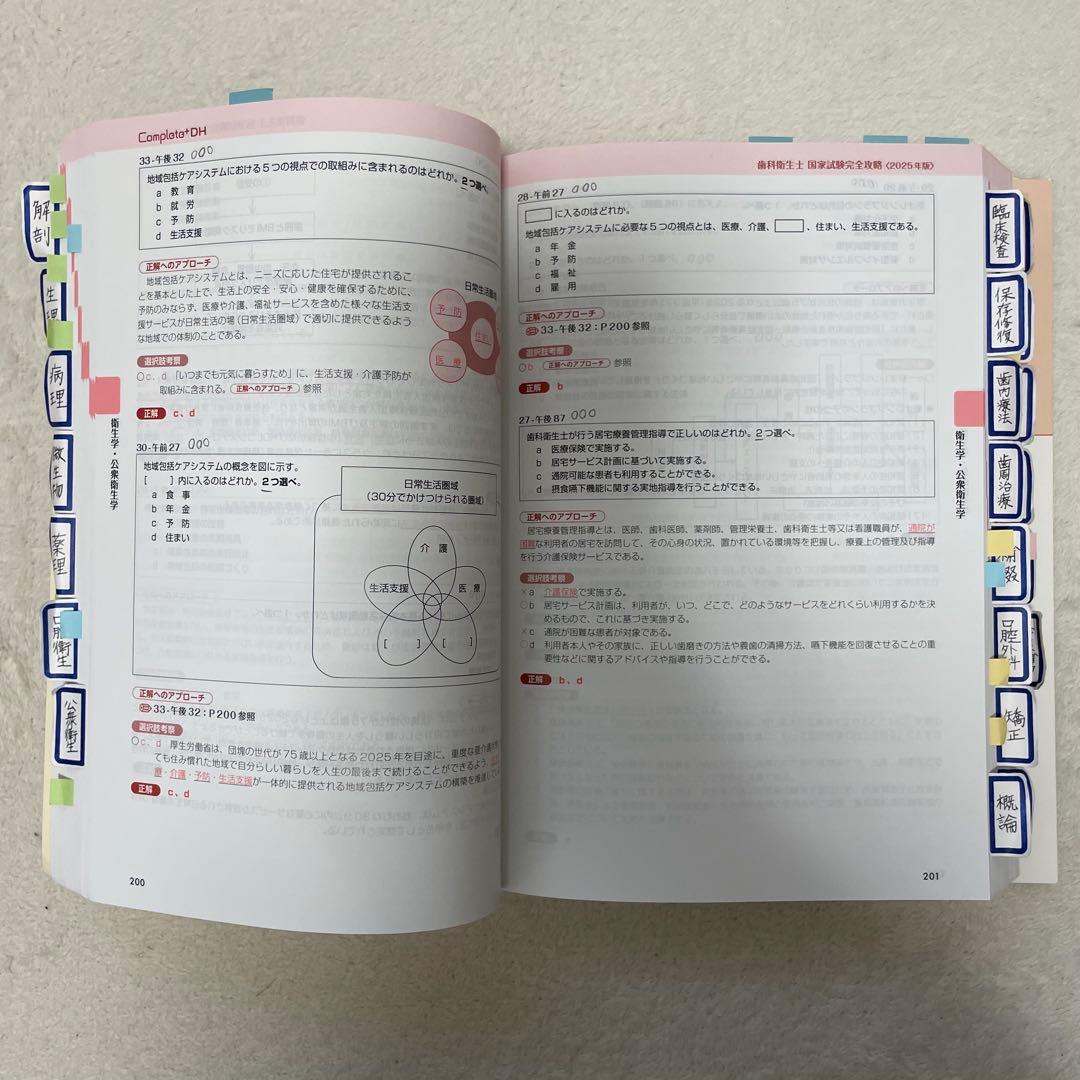 Complete+DH
33-午後32 000
地域包括ケアシステムにおける5つの視点での取組みに含まれるのはどれか。2つ選べ。
a 教育
b 就労
c 予防
d 生活支援
正解へのアプローチ
地域包括ケアシステムとは、ニーズに応じた住宅が提供されるこ
とを基本とした上で、生活上の安全・安心・健康を確保するために、
予防のみならず、医療や介護、福祉サービスを含めた様々な生活支
援サービスが日常生活の場(日常生活圏域)で適切に提供できるよう
な地域での体制のことである。
日常生活圏域
予防
住まい
医療
選択肢考察
○c、d 「いつまでも元気に暮らすため」に、生活支援・介護予防が
取組みに含まれる。 正解へのアプローチ 参照
正解 c、d
30-午前27 000
地域包括ケアシステムの概念を図に示す。
[ ]内に入るのはどれか。2つ選べ。
a 食事
b 年金
c 予防
d 住まい
日常生活圏域
(30分でかけつけられる圏域)
介護
生活支援
医療
[ ]
[ ]
正解へのアプローチ
33-午後32:P200参照
選択肢考察
○c、d 厚生労働省は、団塊の世代が75歳以上となる2025年を目途に、重度な要介護
ても住み慣れた地域で自分らしい暮らしを人生の最後まで続けることができるよう、
療・介護・予防・生活支援が一体的に提供される地域包括ケアシステムの構築を推進
正解 c、d
200
衛生学・公衆衛生学
解剖
生理
病理
微生物
薬理
口腔衛生
公衆衛生
歯科衛生士 国家試験完全攻略〈2025年版〉
28-午前27 000
に入るのはどれか。
地域包括ケアシステムに必要な5つの視点とは、医療、介護、 、住まい、生活支援である。
a 年金
b 予防
c 福祉
d 雇用
正解へのアプローチ
33-午後32:P200参照
選択肢考察
○b 正解へのアプローチ 参照
正解 b
27-午後87 000
歯科衛生士が行う居宅療養管理指導で正しいのはどれか。2つ選べ。
a 医療保険で実施する。
b 居宅サービス計画に基づいて実施する。
c 通院可能な患者も利用することができる。
d 摂食嚥下機能に関する実地指導を行うことができる。
正解へのアプローチ
居宅療養管理指導とは、医師、歯科医師、薬剤師、管理栄養士、歯科衛生士等又は看護職員が、通院が
困難な利用者の居宅を訪問して、その心身の状況、置かれている環境等を把握し、療養上の管理及び指導
を行う介護保険サービスである。
選択肢考察
×a 介護保険で実施する。
○b 居宅サービス計画は、利用者が、いつ、どこで、どのようなサービスをどれくらい利用するかを決
めるもので、これに基づき実施する。
×c 通院が困難な患者が対象である。
○d 利用者本人やその家族に、正しい歯磨きの方法や義歯の清掃方法、嚥下機能を回復させることの重
要性などに関するアドバイスや指導を行うことができる。
正解 b、d
201
衛生学・公衆衛生学
臨床検査
保存修復
歯内療法
歯周治療
口腔外科
矯正
概論